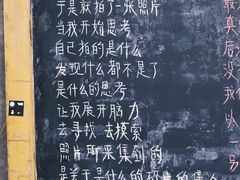 于是就拍了一张照片
当我开始思考
自己拍的是什么
发现什么都不是了
是什么的思考
让我展开脑力
去寻找 去摸索
照片所采集到的
是关于是什么的
最真
后没
我以
一另